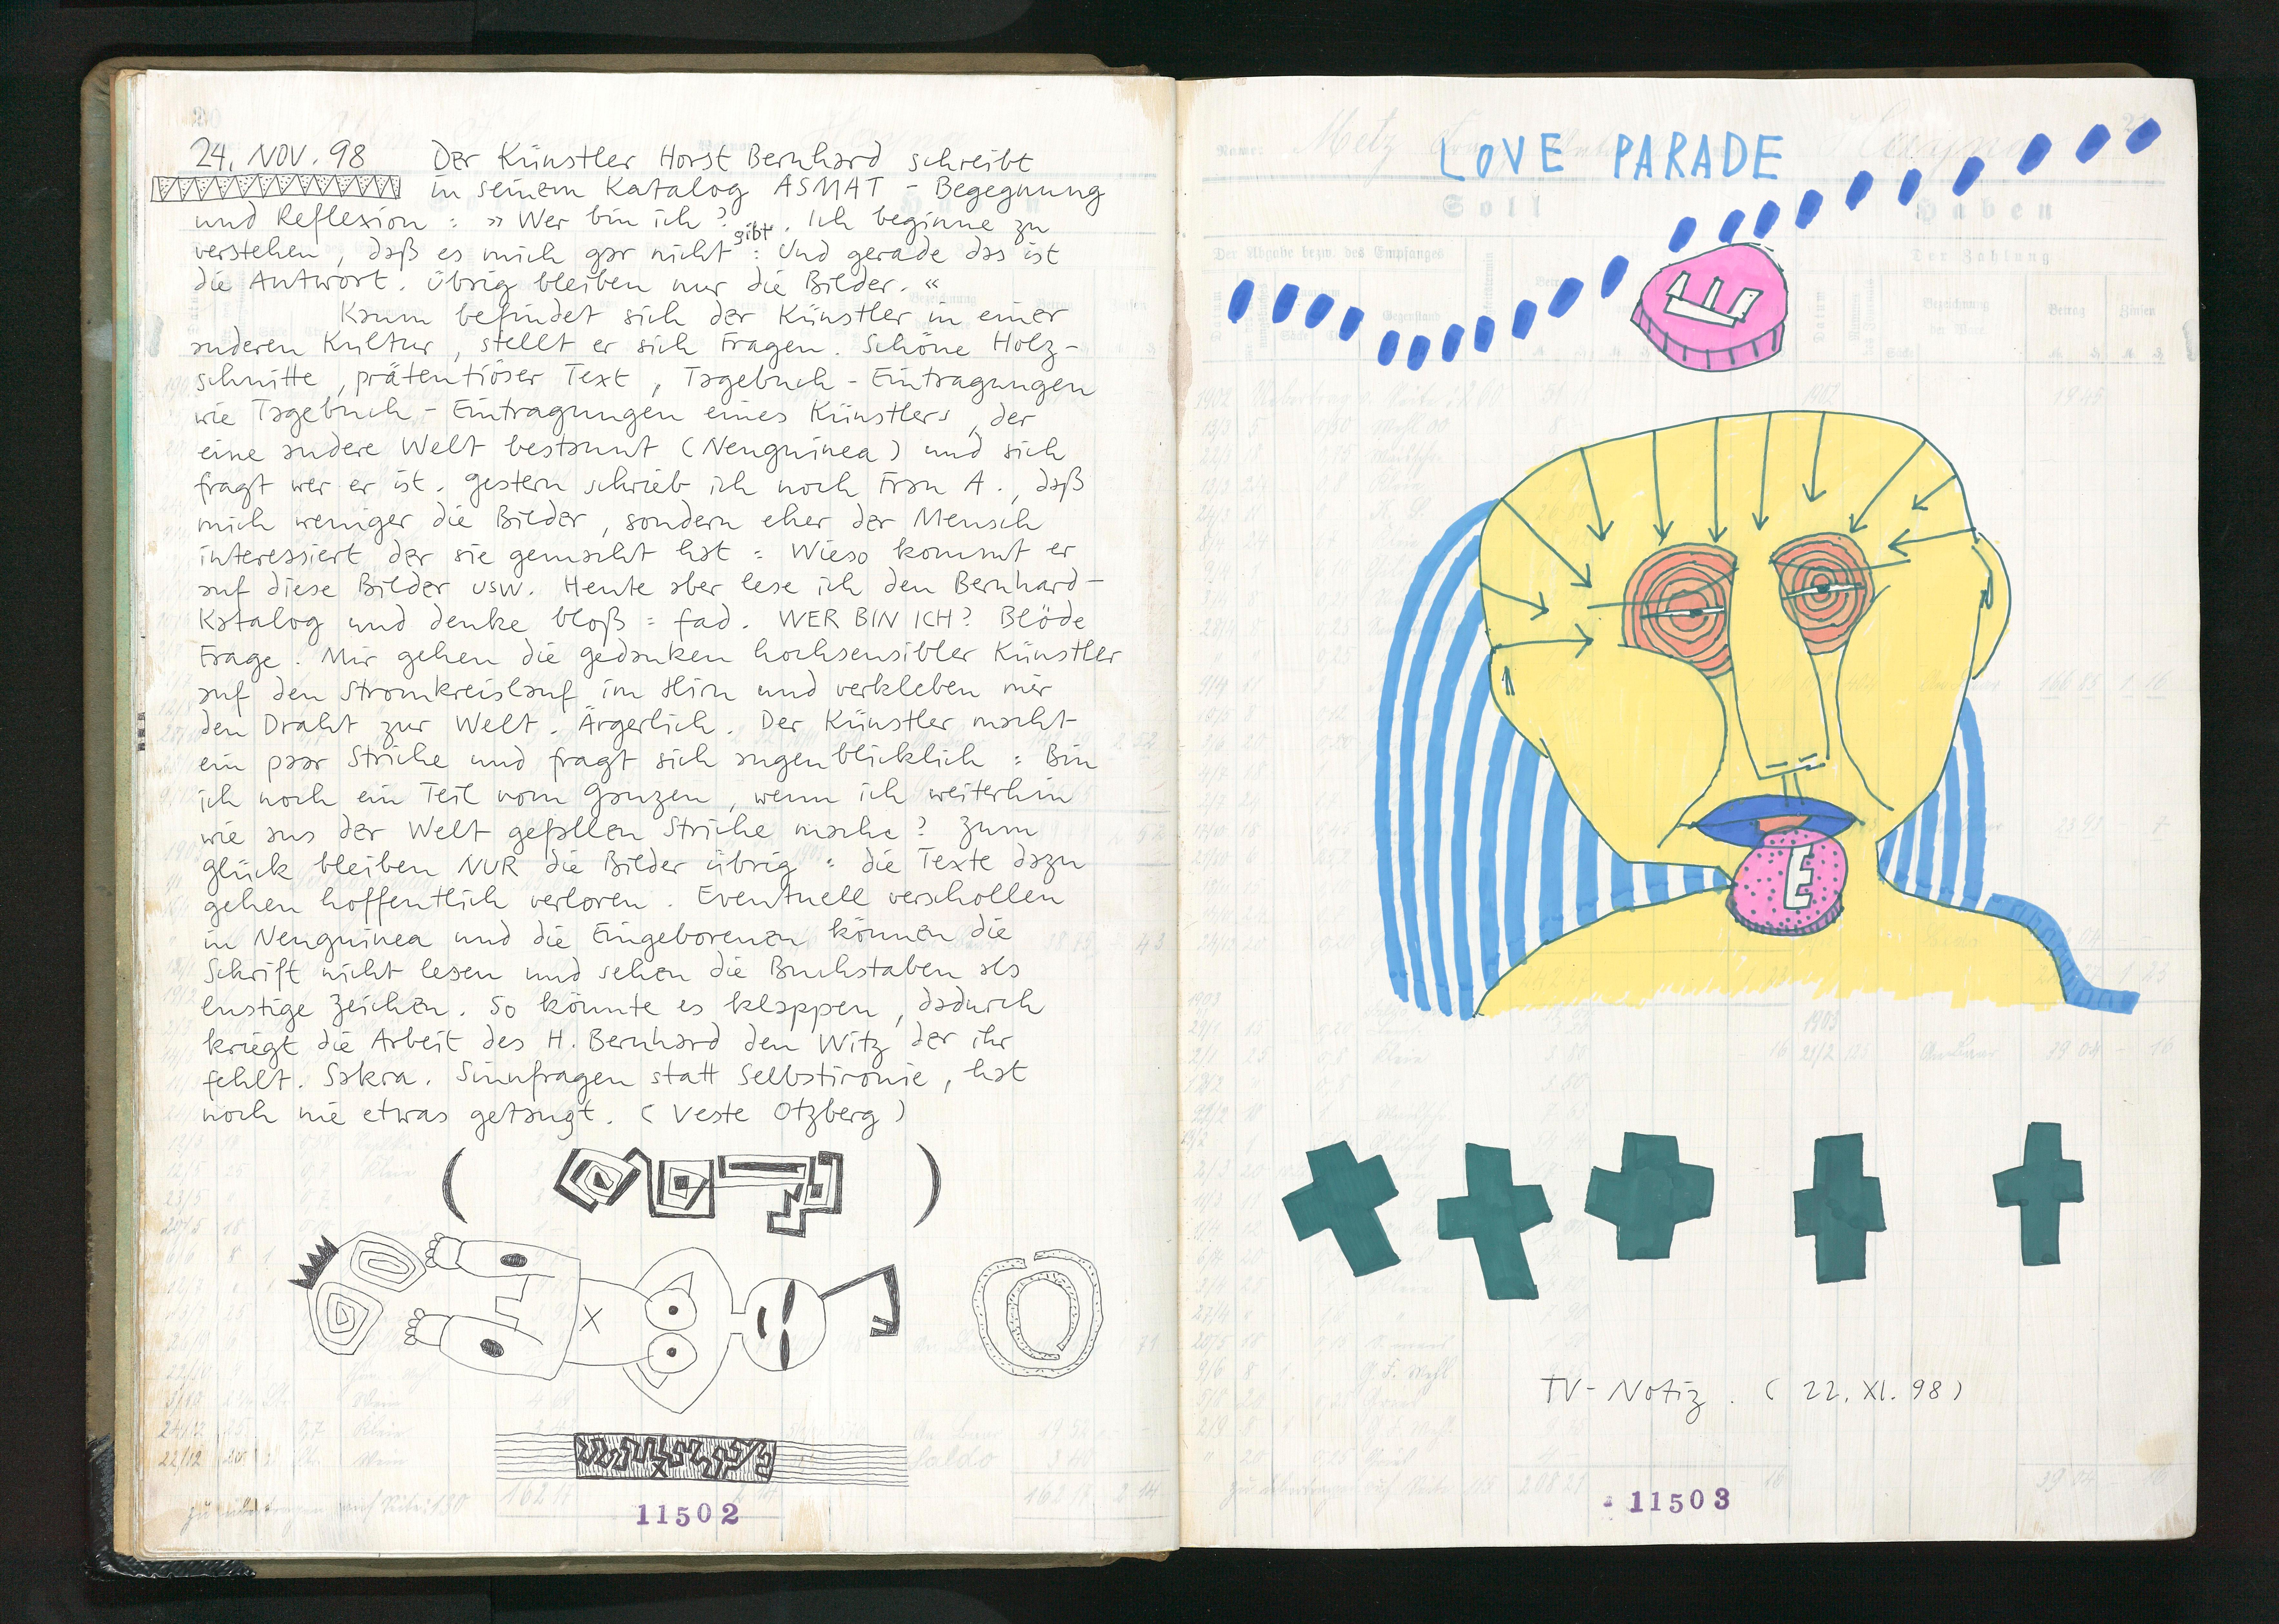 24. NOV. 98 Der Künstler Horst Bernhard schreibt
in seinem Katalog ASMAT - Begegnung
und Reflexion : » Wer bin ich ? . Ich beginne zu
verstehen, daß es mich gar nicht gibt : Und gerade das ist
die Antwort. Übrig bleiben nur die Bilder. «
Kaum befindet sich der Künstler in einer
anderen Kultur, stellt er sich Fragen. Schöne Holz-
schnitte, prätentiöser Text, Tagebuch - Eintragungen
wie Tagebuch - Eintragungen eines Künstlers, der
eine andere Welt bestaunt (Neuguinea) und sich
fragt wer er ist. Gestern schrieb ich noch Frau A., daß
mich weniger die Bilder, sondern eher der Mensch
interessiert der sie gemacht hat : Wieso kommt er
auf diese Bilder usw. Heute aber lese ich den Bernhard-
Katalog und denke bloß : fad. WER BIN ICH? Blöde
Frage. Mir gehen die Gedanken hochsensibler Künstler
auf den Stromkreislauf im Hirn und verkleben mir
den Draht zur Welt. Ärgerlich. Der Künstler macht
ein paar Striche und fragt sich augenblicklich : Bin
ich noch ein Teil vom Ganzen, wenn ich weiterhin
wie aus der Welt gefallen Striche mache? Zum
Glück bleiben NUR die Bilder übrig : die Texte dazu
gehen hoffentlich verloren. Eventuell verschollen
in Neuguinea und die Eingeborenen können die
Schrift nicht lesen und sehen die Buchstaben als
lustige Zeichen. So könnte es klappen, dadurch
kriegt die Arbeit des H. Bernhard den Witz der ihr
fehlt. Sakra. Sinnfragen statt Selbstironie, hat
noch nie etwas getaugt. (Veste Otzberg)
11502
LOVE PARADE
Name: Metz
Soll Haben
Der Abgabe bezw. des Empfanges
Der Zahlung
Datum
Betrag
Zinsen
E
E
Saldo
TV - Notiz. (22. XI. 98)
11503